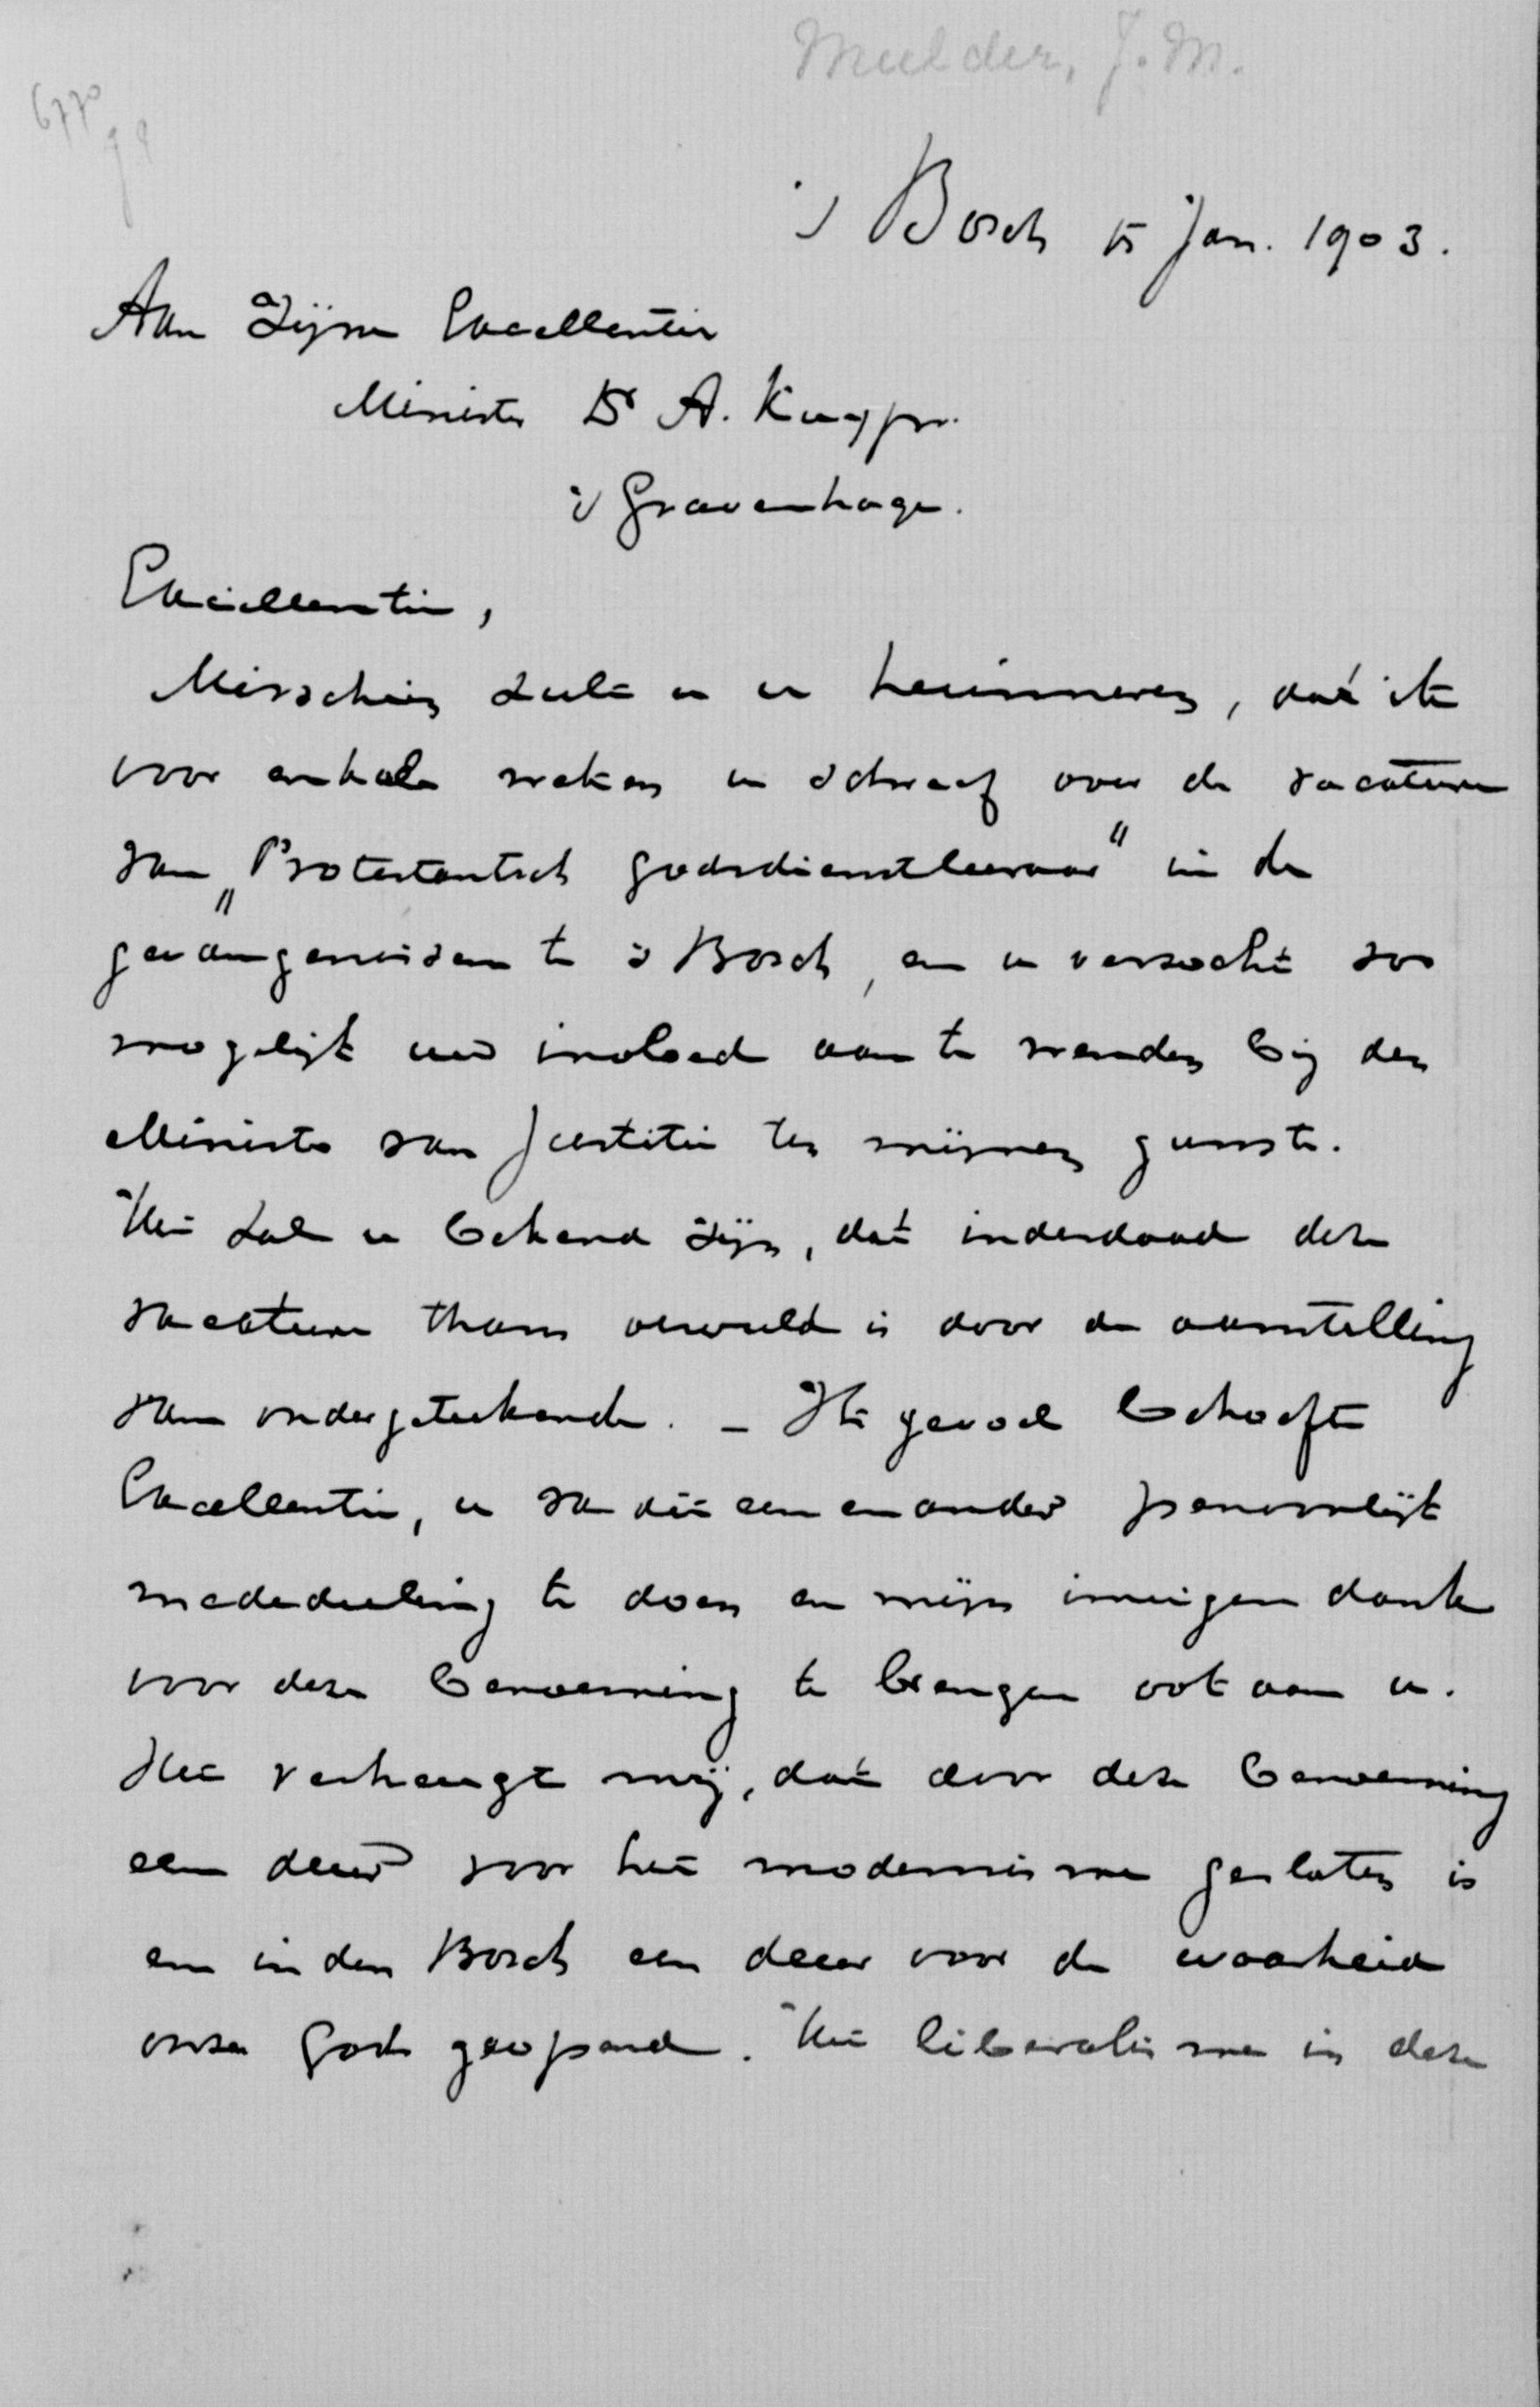 Mulder, J. M.
6770
's Bosch 15 Jan. 1903.
Aan Zijne Excellentie
Minister Dr A. Kuyper.
's Gravenhage.
Excellentie,
Misschien zult u u herinneren, dat ik
voor enkele weken u schreef over de vacature
van „Protestantsch godsdienstleeraar" in de
gevangenissen te 's Bosch, en u verzocht zoo
mogelijk uw invloed aan te wenden bij den
Minister van Justitie ten mijnen gunste.
Het zal u bekend zijn, dat inderdaad deze
vacature thans vervuld is door de aanstelling
van ondergeteekende. – Ik gevoel behoefte
Excellentie, u van dit een en ander persoonlijk
mededeeling te doen en mijn innigen dank
voor deze benoeming te brengen ook aan u.
Het verheugt mij, dat door deze benoeming
een deur voor het modernisme gesloten is
en in den Bosch een deur voor de waarheid
onzes Gods geopend. Het liberalisme in deze